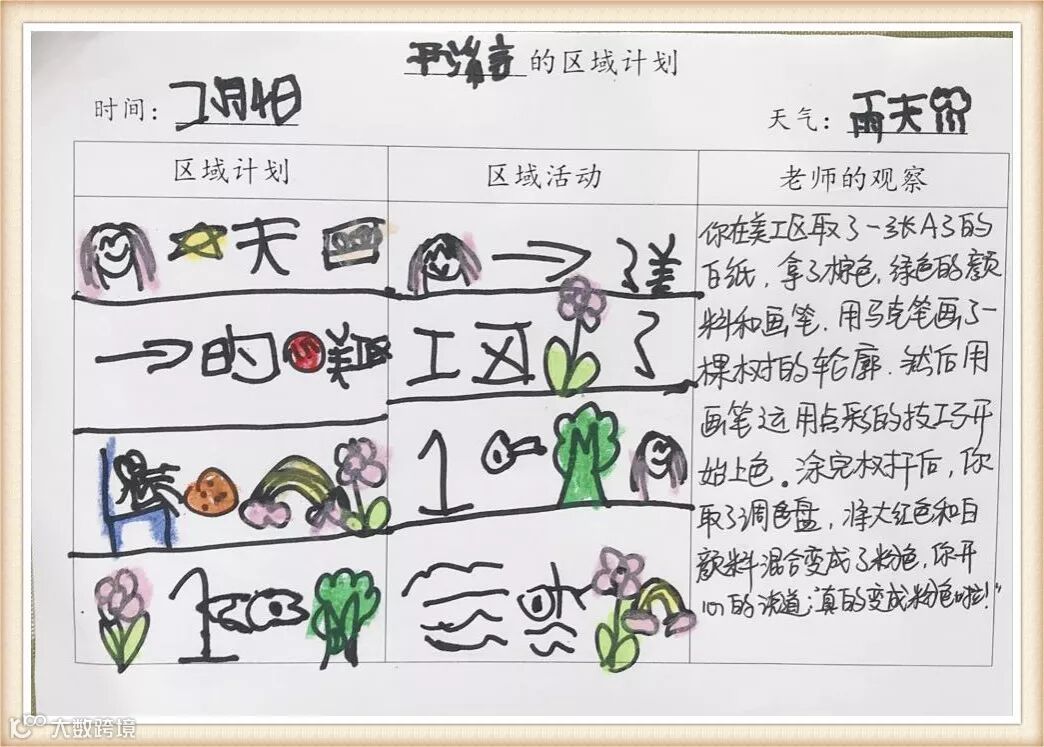 的区域计划
时间：2月4日
天气：雨天
区域计划
区域活动
老师的观察
天
的 美工区
1
美
工区了
1
你在美工区取了一张A3的
白纸，拿了棕色，绿色的颜
料和画笔，用马克笔画了一
棵树的轮廓．然后用
画笔运用点彩的技工了开
始上色。涂完树干后，你
取了调色盘，将大红色和白
颜料混合变成了粉色，你开
心的说道：“真的变成粉色啦！”
大数跨境